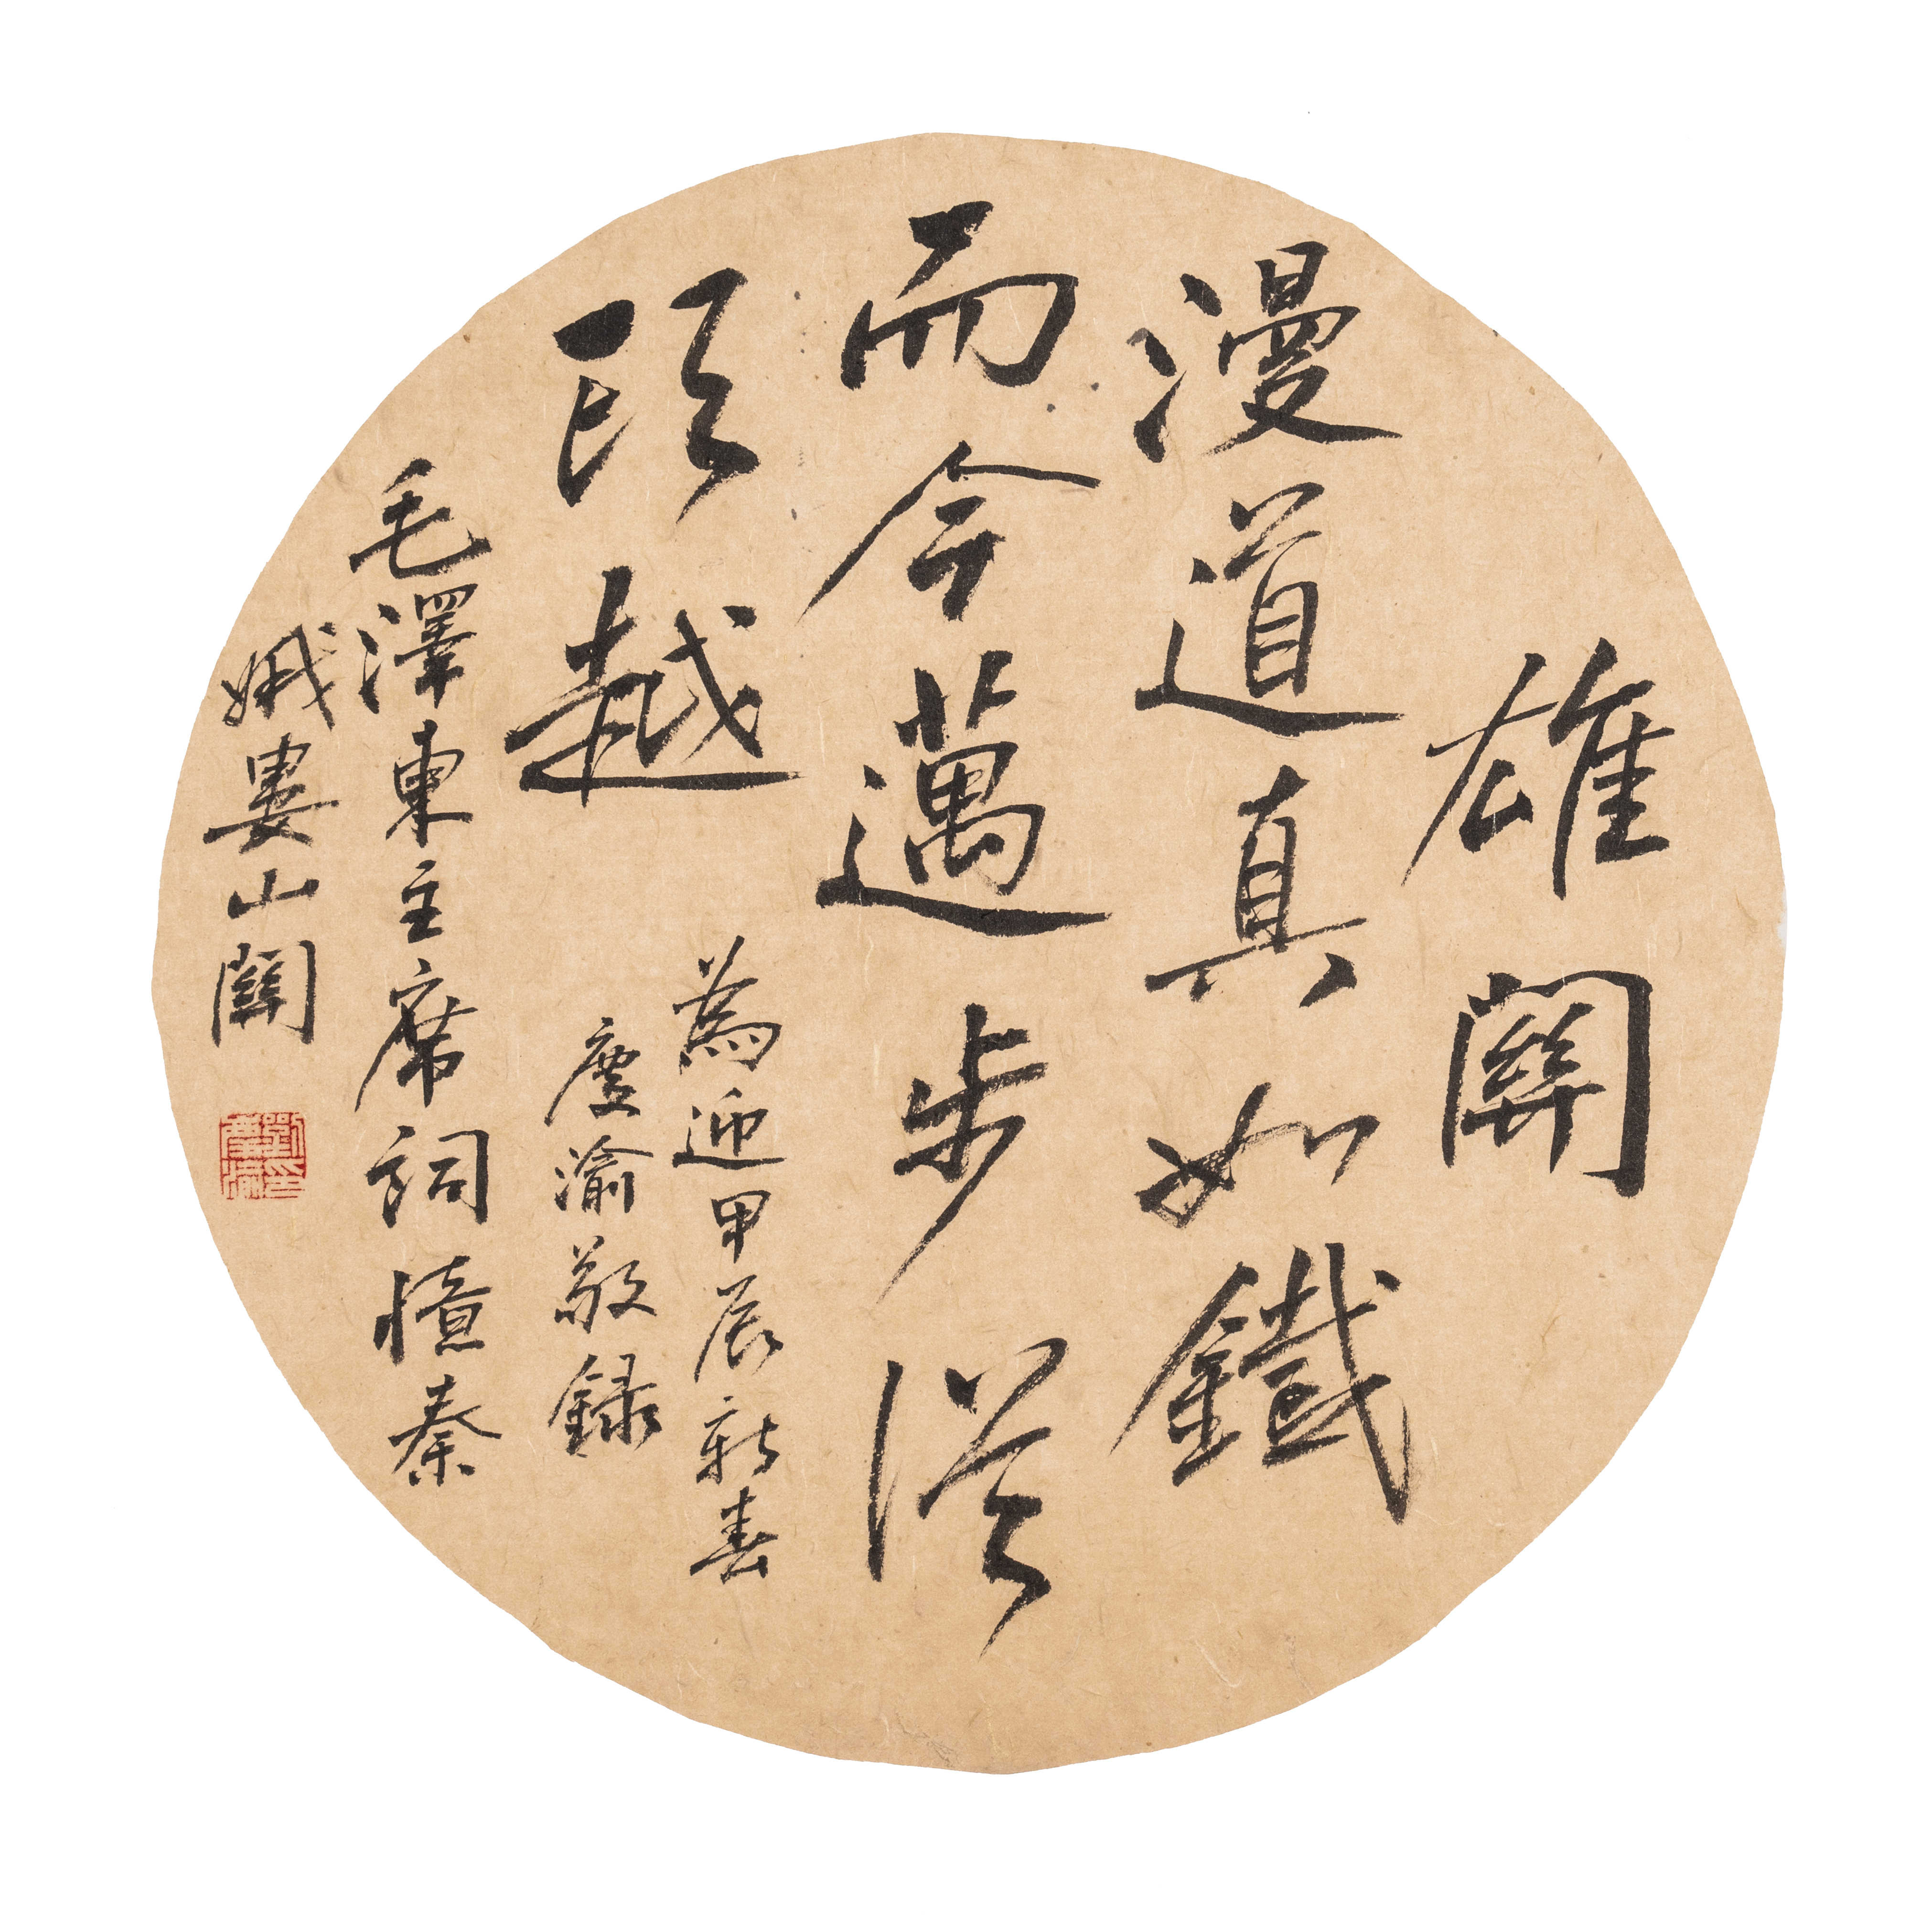 雄關
漫道真如鐵
而今邁步從
頭越
為迎甲辰新春
慶渝敬録
毛澤東主席詞憶秦
娥婁山關